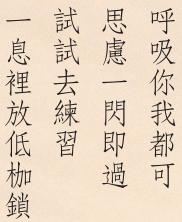 呼吸你我都可
思慮一閃即過
試試去練習
一息裡放低枷鎖